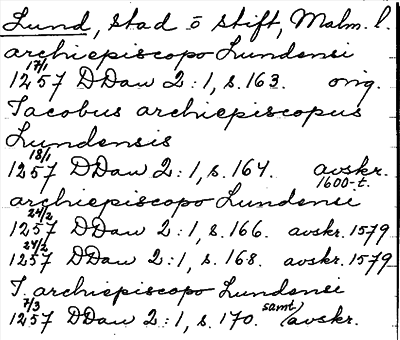 Lund, stad o stift, Malm. l.
archiepiscopo Lundensi
1257 17/1 DDan 2:1, s. 163. orig.
Jacobus archiepiscopus
Lundensis
1257 18/1 DDan 2:1, s. 164. avskr. 1600-t.
archiepiscopo Lundensi
1257 24/2 DDan 2:1, s. 166. avskr. 1579
1257 24/2 DDan 2:1, s. 168. avskr. 1579
J. archiepiscopo Lundensi
1257 7/3 DDan 2:1, s. 170. (samt) avskr.